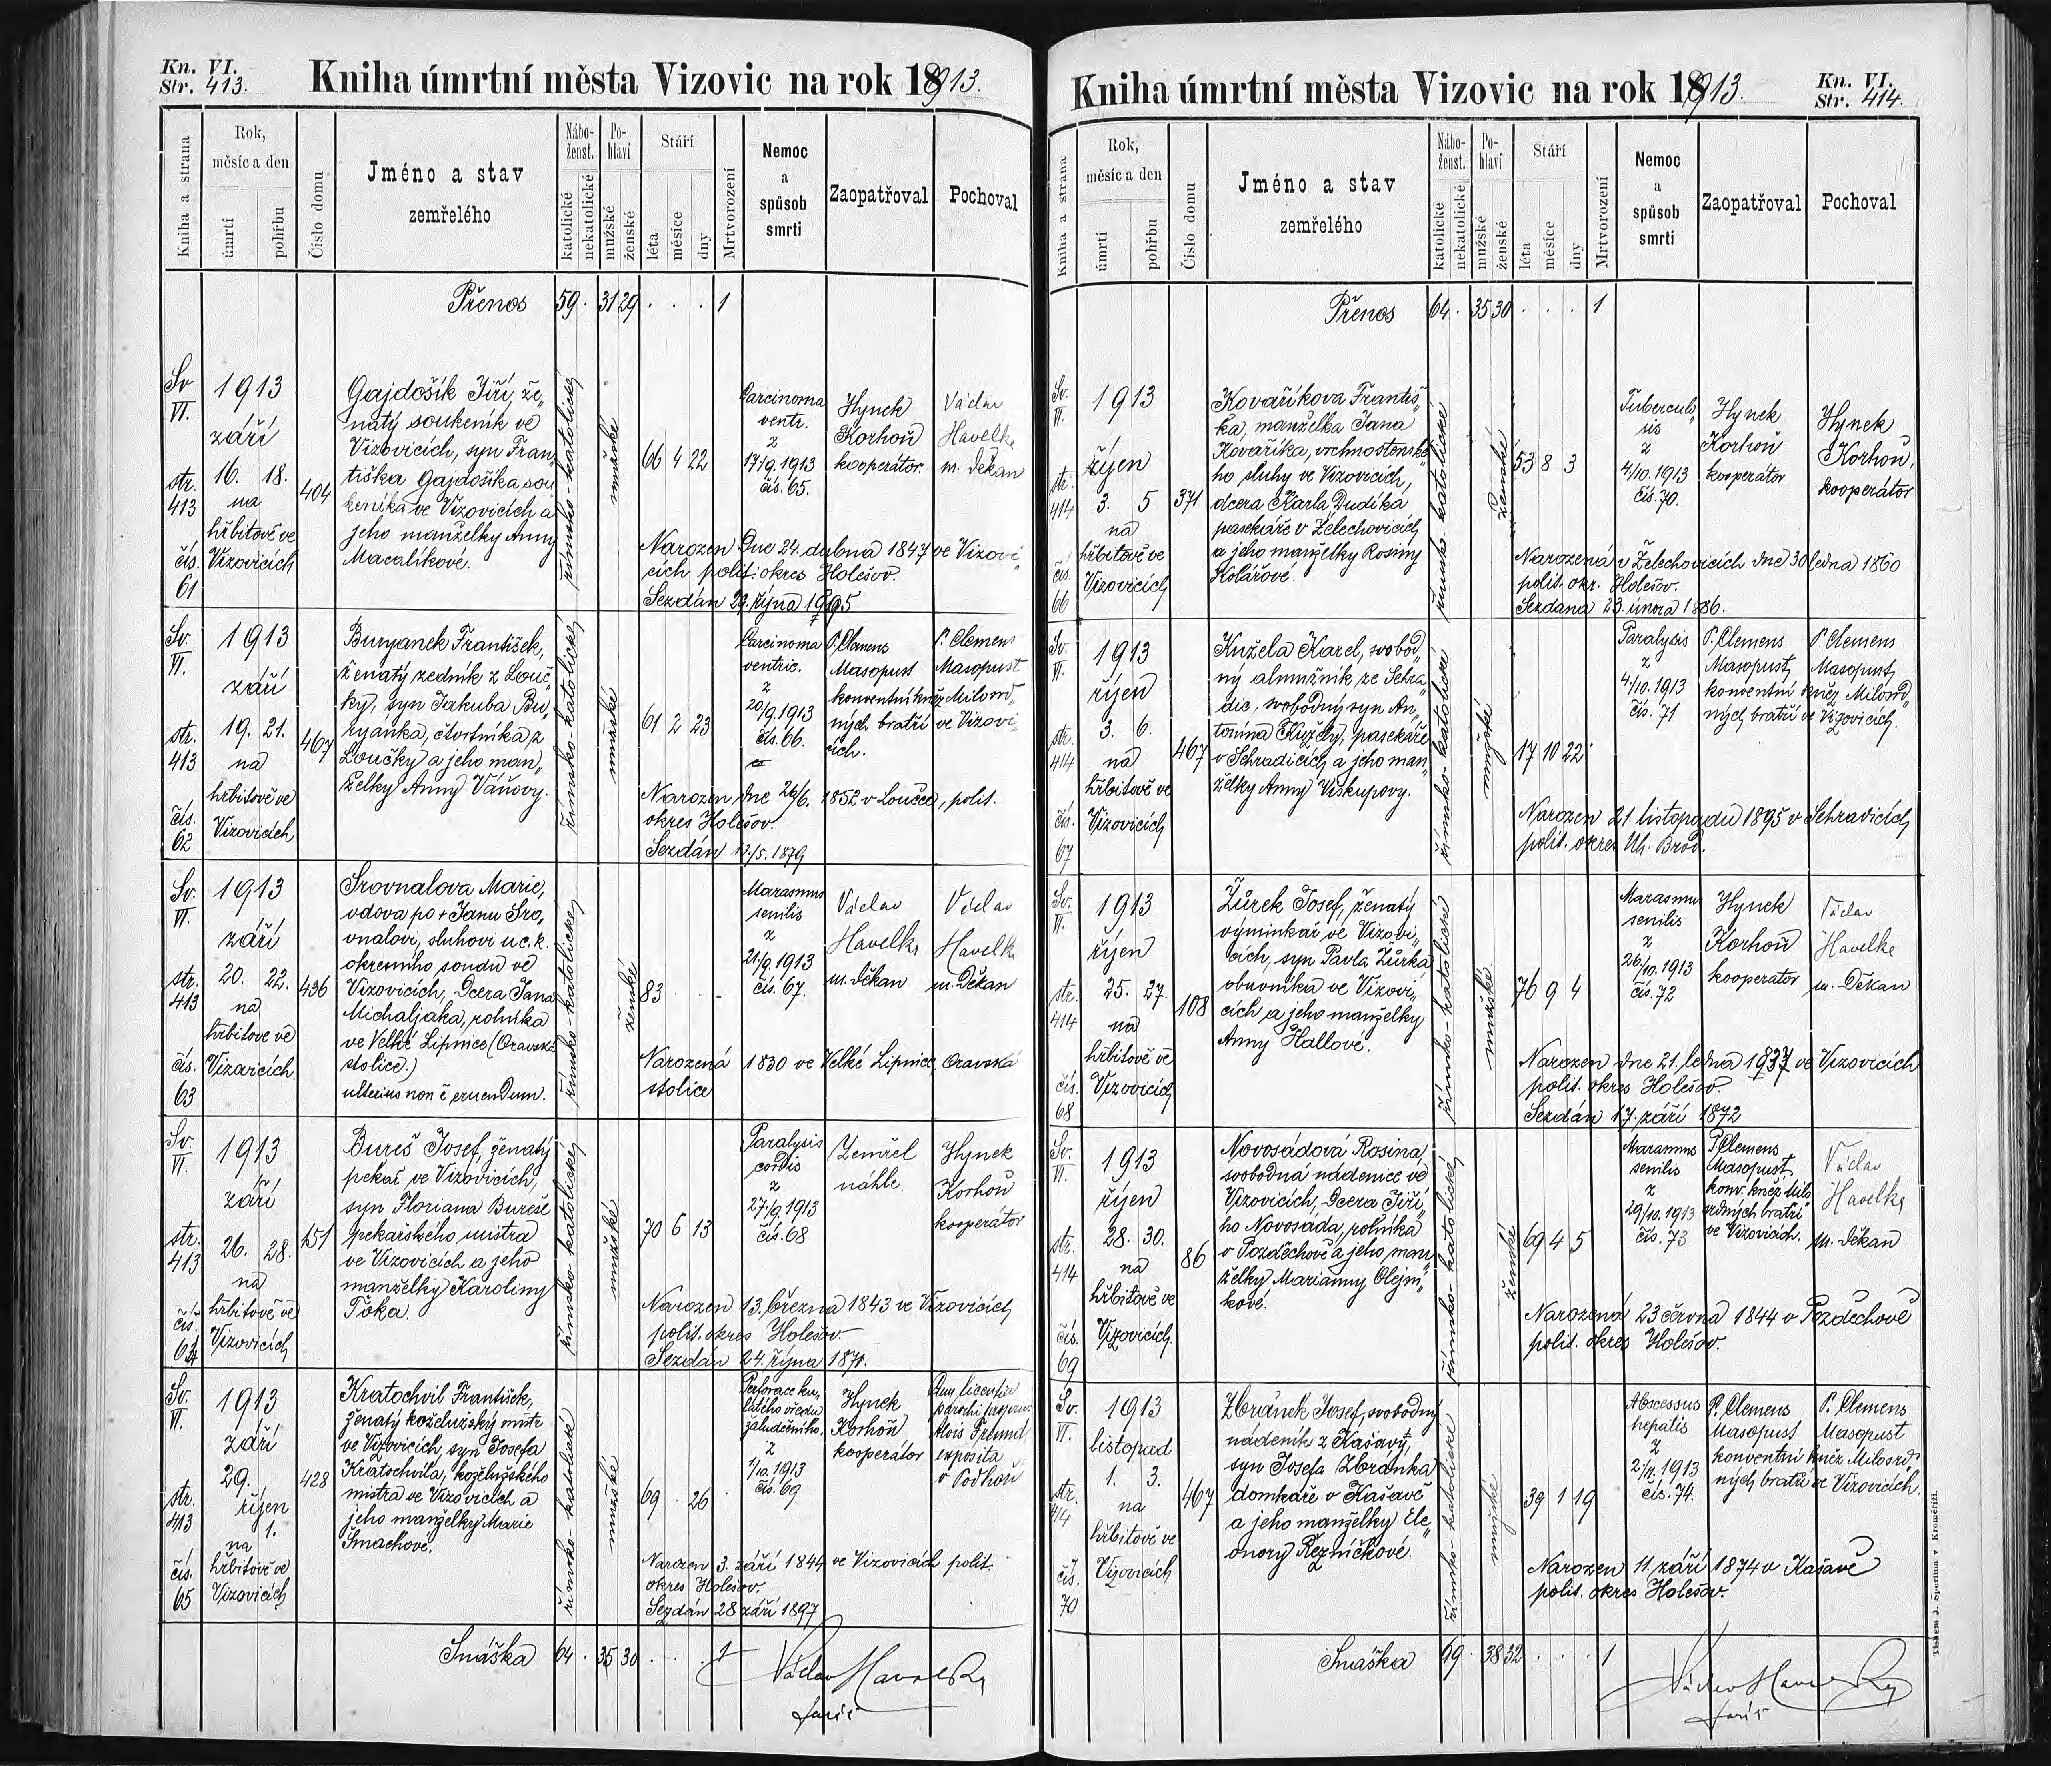 Kn. VI.
Str. 413.
Kniha úmrtní města Vizovic na rok 1913.
Kniha a strana
Rok, měsíc a den
úmrtí
pohřbu
Číslo domu
Jméno a stav
zemřelého
Nábo-
ženst.
katolické
nekatolické
Po-
hlaví
mužské
ženské
Stáří
léta
měsíce
dny
Mrtvorození
Nemoc
a
spůsob
smrti
Zaopatřoval
Pochoval
Přenos 59 . 31 29 . . . 1
Sv.
VI.
str.
413
čís.
61
1913
září
16. 18.
na
hřbitově ve
Vizovicích
404
Gajdošík Jiří, že„
natý soukeník ve
Vizovicích, syn Fran„
tiška Gajdošíka sou
keníka ve Vizovicích a
jeho manželky Anny
Macalíkové.
římsko-katolické
mužské
66 4 22
Carcinoma
ventr.
z
17/9.1913
čís. 65.
Hynek
Korhoň
kooperátor.
Václav
Havelka
m. děkan
Narozen dne 24. dubna 1847 ve Vizovi„
cích polit. okres Holešov.
Sezdán 29. října 1895
Sv.
VI.
str.
413
čís.
62
1913
září
19. 21.
na
hřbitově ve
Vizovicích
467
Buryanek František,
ženatý zedník z Louč„
ky, syn Jakuba Bu„
ryánka, čtvrtníka z
Loučky a jeho man„
želky Anny Váňovy.
římsko-katolické
mužské
61 2 23
Carcinoma
ventric.
z
20/9.1913
čís. 66.
P. Clemens
Masopust
konventní kněz Milosrd„
ných bratří ve Vizovi„
cích.
P. Clemens
Masopust
Narozen dne 26/6. 1852 v Loučce, polit.
okres Holešov.
Sezdán 12./5. 1879
Sv.
VI.
str.
413
čís.
63
1913
září
20. 22.
na
hřbitově ve
Vizovicích
436
Srovnalova Marie,
vdova po + Janu Sro„
vnalovi, sluhovi u c. k.
okresního soudu ve
Vizovicích, dcera Jana
Michaljaka, rolníka
ve Velké Lipnice (Oravská
stolice.)
ulterius non ē eruendum.
římsko-katolické
ženské
83 . .
Marasmus
senilis
z
21/9.1913
čís. 67.
Václav
Havelka
m. děkan
Václav
Havelka
m. děkan
Narozená 1830 ve Velké Lipnice, Oravská
stolice
Sv.
VI.
str.
413
čís.
64
1913
září
26. 28.
na
hřbitově ve
Vizovicích
451
Bureš Josef, ženatý
pekař ve Vizovicích,
syn Floriana Bureše
pekařského mistra
ve Vizovicích a jeho
manželky Karoliny
Foka.
římsko-katolické
mužské
70 6 13
Paralysis
cordis
z
27./9.1913
čís. 68
Zemřel
náhle.
Hynek
Korhoň
kooperátor
Narozen 13. března 1843 ve Vizovicích
polit. okres Holešov
Sezdán 24. října 1871.
Sv.
VI.
str.
413
čís.
65
1913
září
29.
říjen
1.
na
hřbitově ve
Vizovicích
428
Kratochvil František,
ženatý koželužský mistr
ve Vizovicích, syn Josefa
Kratochvila, koželužského
mistra ve Vizovicích a
jeho manželky Marie
Smachové.
římsko-katolické
mužské
69 . 26
Perforace ku„
latého vředu
žaludečního.
z
1/10.1913
čís. 69
Hynek
Korhoň
kooperátor
Cum licentia
parochi
Alois Freund
exposita
v Podhoří
Narozen 3. září 1844 ve Vizovicích polit.
okres Holešov.
Sezdán 28 září 1897
Snáška 64 . 35 30 . . . 1
Václav Havelka
farář
Kniha úmrtní města Vizovic na rok 1913.
Kn. VI.
Str. 414.
Kniha a strana
Rok,
měsíc a den
úmrtí
pohřbu
Číslo domu
Jméno a stav
zemřelého
Nábo-
ženst.
katolické
nekatolické
Po-
hlaví
mužské
ženské
Stáří
léta
měsíce
dny
Mrtvorození
Nemoc
a
spůsob
smrti
Zaopatřoval
Pochoval
Přenos 64 . 35 30 . . . 1
Sv.
VI.
str.
414
čís.
66
1913
říjen
3. 5
na
hřbitově ve
Vizovicích
371
Kovaříkova Františ„
ka, manželka Jana
Kovaříka, vrchnostenské„
ho sluhy ve Vizovicích,
dcera Karla Dudíka
pasekáře v Želechovicích
a jeho manželky Rosiny
Kolářové.
římsko-katolické
ženské
53 8 3
Tubercul„
sis
z
4/10.1913
čís. 70.
Hynek
Korhoň
kooperátor
Hynek
Korhoň,
kooperátor
Narozená v Želechovicích dne 30 ledna 1860
polit. okr. Holešov.
Sezdana 23. února 1886.
Sv.
VI.
str.
414
čís.
67
1913
říjen
3. 6.
na
hřbitově ve
Vizovicích
467
Kužela Karel, svobod„
ný almužník ze Sehra„
dic, svobodný syn An„
tonína Kužely, pasekáře
v Sehradicích a jeho man„
želky Anny Viskupovy.
římsko-katolické
mužské
17 10 22
Paralysis
z
4/10.1913
čís. 71
P. Clemens
Masopust,
konventní kněz Milosrd„
ných bratří ve Vizovicích.
P. Clemens
Masopust,
Narozen 21 listopadu 1895 v Sehradicích
polit. okres Uh. Brod.
Sv.
VI.
str.
414
čís.
68
1913
říjen
25. 27.
na
hřbitově ve
Vizovicích
108
Žůrek Josef, ženatý
výminkář ve Vizovi„
cích, syn Pavla Žůrka
obuvníka ve Vizovi„
cích a jeho manželky
Anny Hallové.
římsko-katolické
mužské
76 9 4
Marasmus
senilis
z
26/10.1913
čís. 72
Hynek
Korhoň
kooperátor
Václav
Havelka
m. děkan
Narozen dne 21. ledna 1837 ve Vizovicích
polit. okres Holešov
Sezdán 17. září 1872
Sv.
VI.
str.
414
čís.
69
1913
říjen
28. 30.
na
hřbitově ve
Vizovicích.
86
Novosádová Rosina,
svobodná nádenice ve
Vizovicích, dcera Jiří„
ho Novosáda, rolníka
v Pozděchově a jeho man„
želky Marianny Olejní„
kové.
římsko-katolické
ženské
69 4 5
Marasmus
senilis
z
29/10.1913
čís. 73
P. Clemens
Masopust,
konv. kněz Milo
srdných bratří
ve Vizovicích.
Václav
Havelka
m. děkan
Narozená 23 června 1844 v Pozděchově
polit. okres Holešov.
Sv.
VI.
str.
414
čís.
70
1913
listopad
1. 3.
na
hřbitově ve
Vizovicích
467
Zbránek Josef, svobodný
nádeník z Kašavy,
syn Josefa Zbránka
domkáře v Kašavě
a jeho manželky Ele„
onory Řezníčkové
římsko-katolické
mužské
39 1 19
Abscessus
hepatis
z
2/11.1913
čís. 74.
P. Clemens
Masopust
konventní kněz Milosrd„
ných bratří ve Vizovicích.
P. Clemens
Masopust
Narozen 11. září 1874 v Kašavě
polit. okres Holešov.
Snáška 69 . 38 32 . . . 1
Václav Havelka
farář
Tiskem J. Sperlina v Kroměříži.